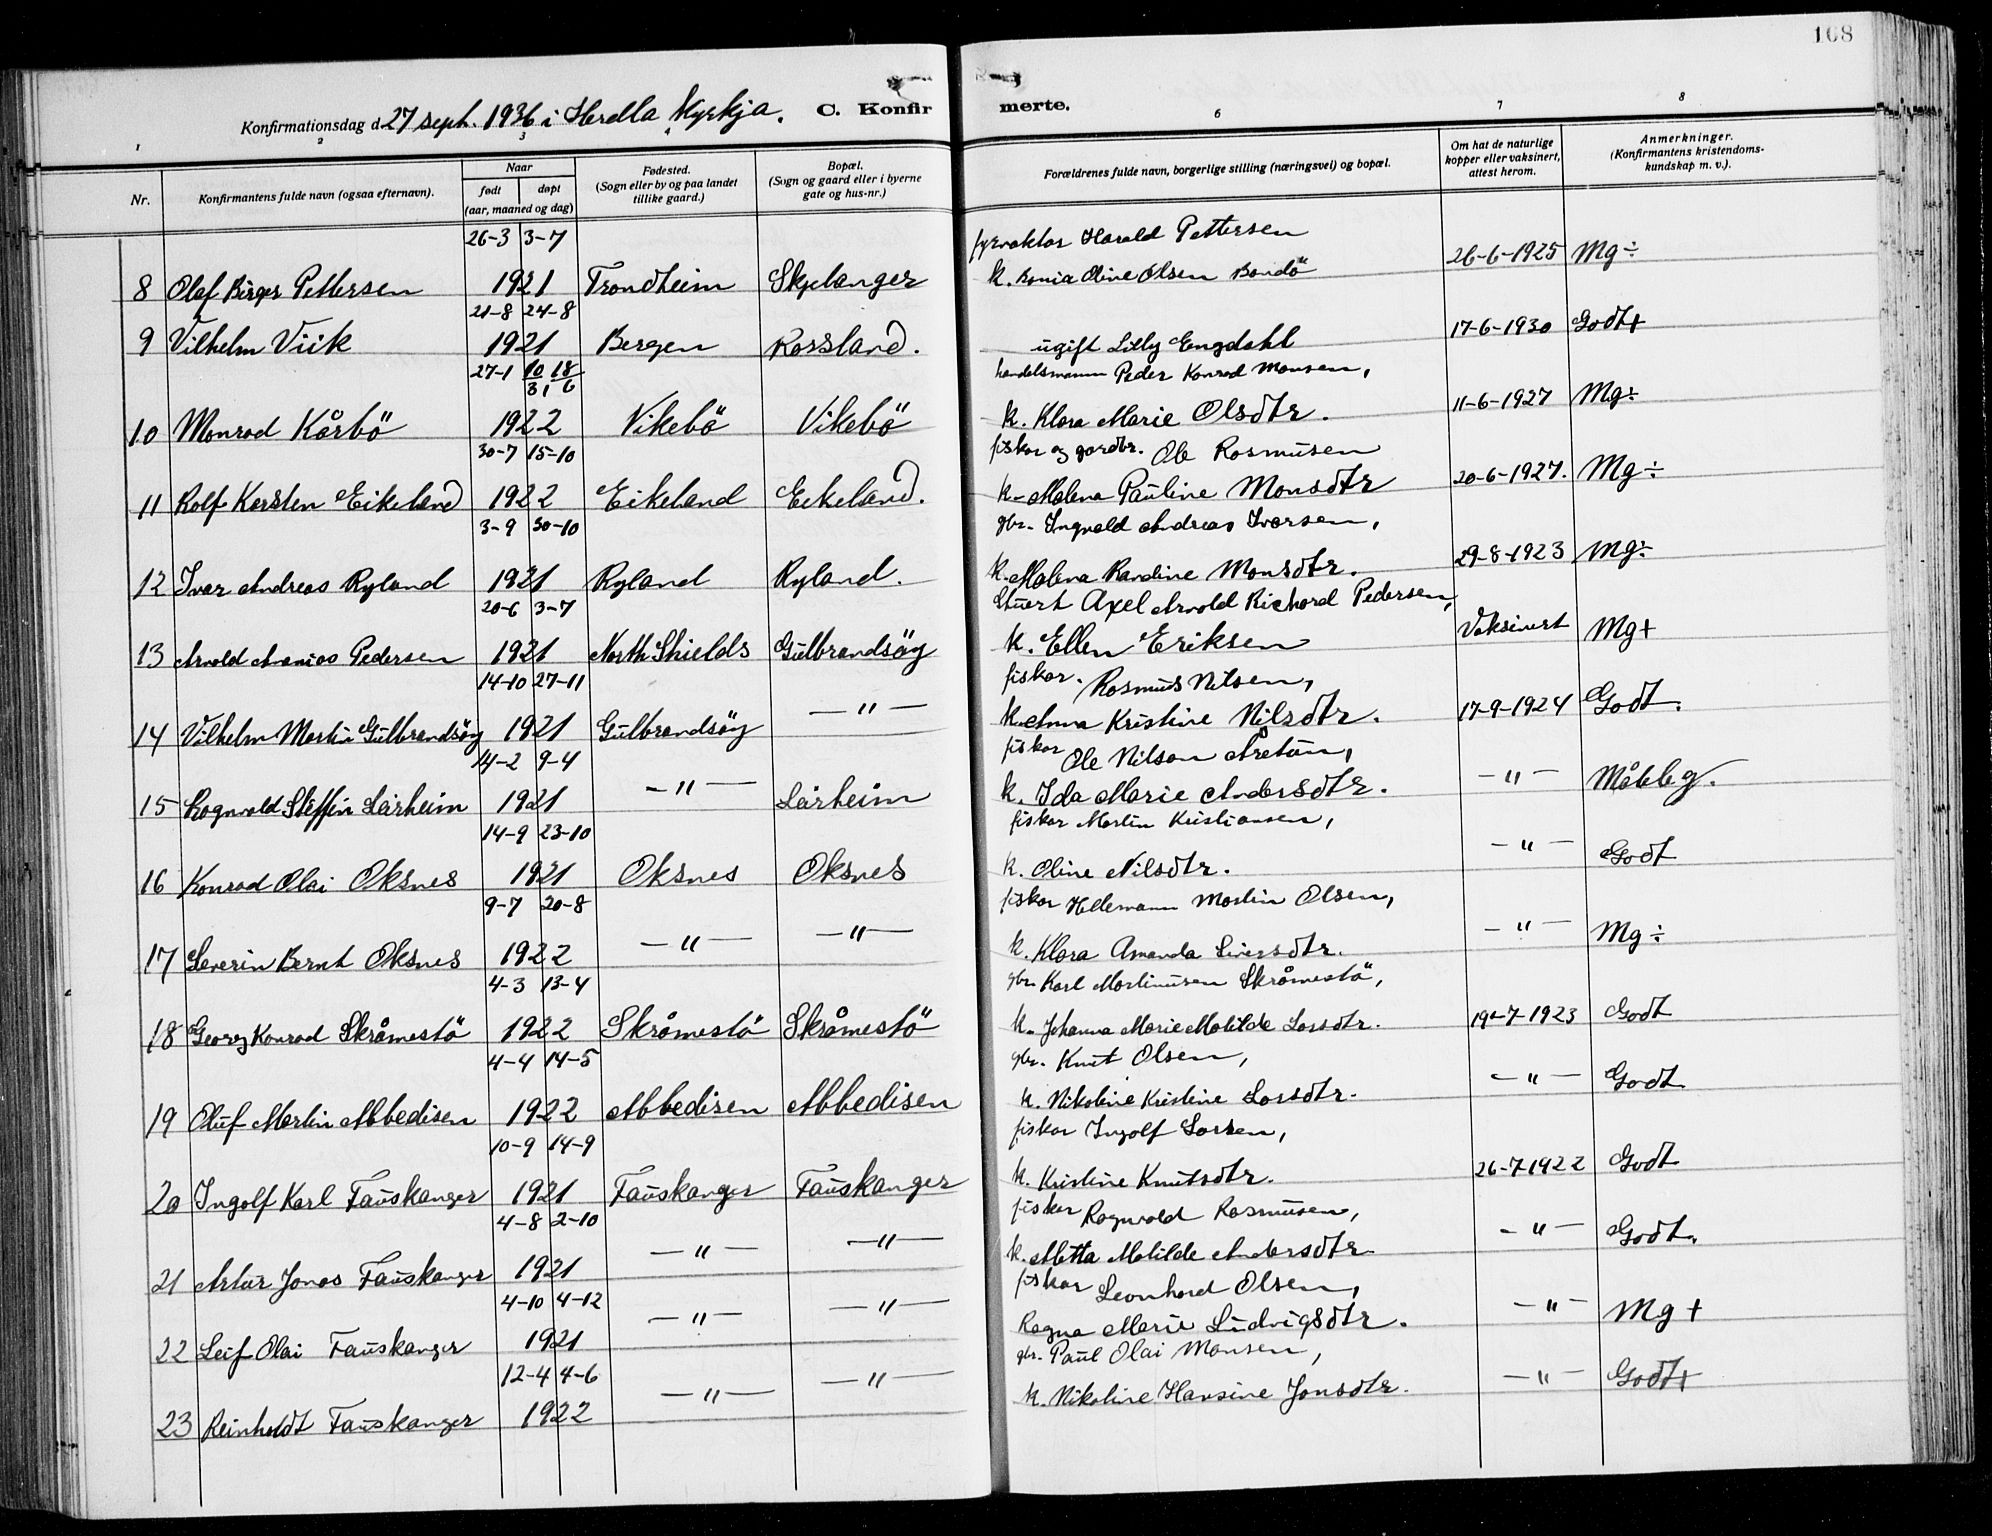 168
Konfirmationsdag d. 27 sept. 1936 i Herdla Kyrkja. C. Konfir merte.
1 2 3 4 6 7 8
Nr. Konfirmantens fulde navn (ogsaa efternavn). Naar født døpt (aar, maaned og dag) Fødested. (Sogn eller by og paa landet tillike gaard.) Bopæl. (Sogn og gaard eller i byerne gate og hus-nr.) Forældrenes fulde navn, borgerlige stilling (næringsvei) og bopæl. Om hat de naturlige kopper eller vaksinert, attest herom. Anmerkninger. (Konfirmantens kristendoms-kundskap m. v.).
26-3 3-7 fyrvaktar Harald Pettersen
8 Olaf Birger Pettersen 1921 Trondheim Skjelanger k. Oline Olsen Bondö 26-6-1925 Mg÷
21-8 24-8
9 Vilhelm Viik 1921 Bergen Rossland. ugift Lilly Engdahl 17-6-1930 Godt+
27-1 10/31 18/6 handelsmann Peder Konrad Monsen,
10 Monrad Kårbö 1922 Vikebö Vikebö k. Klara Marie Olsdtr. 11-6-1927 Mg÷
30-7 15-10 fiskar og gardbr. Ole Rasmusen
11 Rolf Karsten Eikeland 1922 Eikeland Eikeland. k. Malena Pauline Monsdtr 20-6-1927. Mg÷
3-9 30-10 gbr. Ingvald Andreas Ivarsen,
12 Ivar Andreas Ryland 1921 Ryland Ryland. k. Malena Randine Monsdtr. 29-8-1923 Mg÷
20-6 3-7 Stuert Axel Arvold Richard Pedersen,
13 Arnold Ananias Pedersen 1921 North Shields Gulbrandsöy k. Ellen Eriksen Vaksinert Mg+
14-10 27-11 fiskar. Rasmus Nilsen,
14 Vilhelm Martin Gulbrandsöy 1921 Gulbrandsöy —"— k. Anna Kristine Nilsdtr. 17-9-1924 Godt.
14-2 9-4 fiskar Ole Nilson Åretun,
15 Ragnvald Steffin Lårheim 1921 —"— Lårheim k. Ida Marie Andersdtr. —"— Måbbg.
14-9 23-10 fiskar Martin Kristiansen,
16 Konrad Olai Oksnes 1921 Oksnes Oksnes k. Oline Nilsdtr. —"— Godt
9-7 20-8 fiskar Hellemann Martin Olsen,
17 Severin Bernt Oksnes 1922 —"— —"— k. Klara Amanda Siversdtr. —"— Mg÷
4-3 13-4 gbr. Karl Martinusen Skråmestö,
18 Georg Konrad Skråmestö 1922 Skråmestö Skråmestö k. Johanna Marie Matilde Larsdtr. 19-7-1923 Godt
4-4 14-5 gbr. Knut Olsen,
19 Oluf Martin Abbedisen 1922 Abbedisen Abbedisen k. Nikoline Kristine Larsdtr. —"— Godt
10-9 14-9 fiskar Ingolf Larsen,
20 Ingolf Karl Fauskanger 1921 Fauskanger Fauskanger k. Kristine Knutsdtr. 26-7-1922 Godt
4-8 2-10 fiskar Ragnvald Rasmusen,
21 Artur Jonas Fauskanger 1921 —"— —"— k. Metta Matilde Andersdtr. —"— Godt.
4-10 4-12 fiskar Leonhard Olsen,
22 Leif Olai Fauskanger 1921 —"— —"— Ragna Marie Ludvigsdtr. —"— Mg+
12-4 4-6 gbr. Paul Olai Monsen,
23 Reinholdt Fauskanger 1922 —"— —"— k. Nikoline Hansine Jonsdtr. —"— Godt+